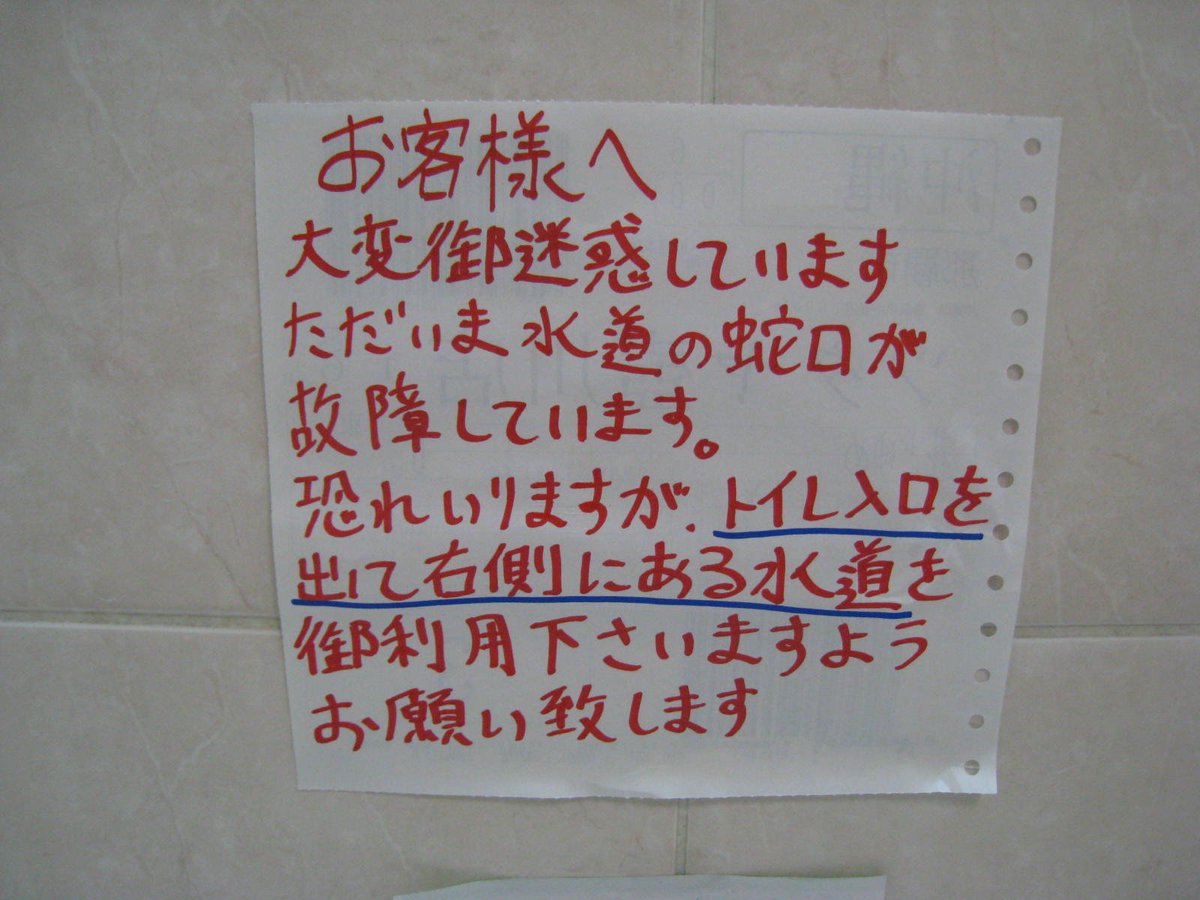 お客様へ
大変御迷惑しています
ただいま水道の蛇口が
故障しています。
恐れいりますが、トイレ入口を
出て右側にある水道を
御利用下さいますよう
お願い致します
沖縄